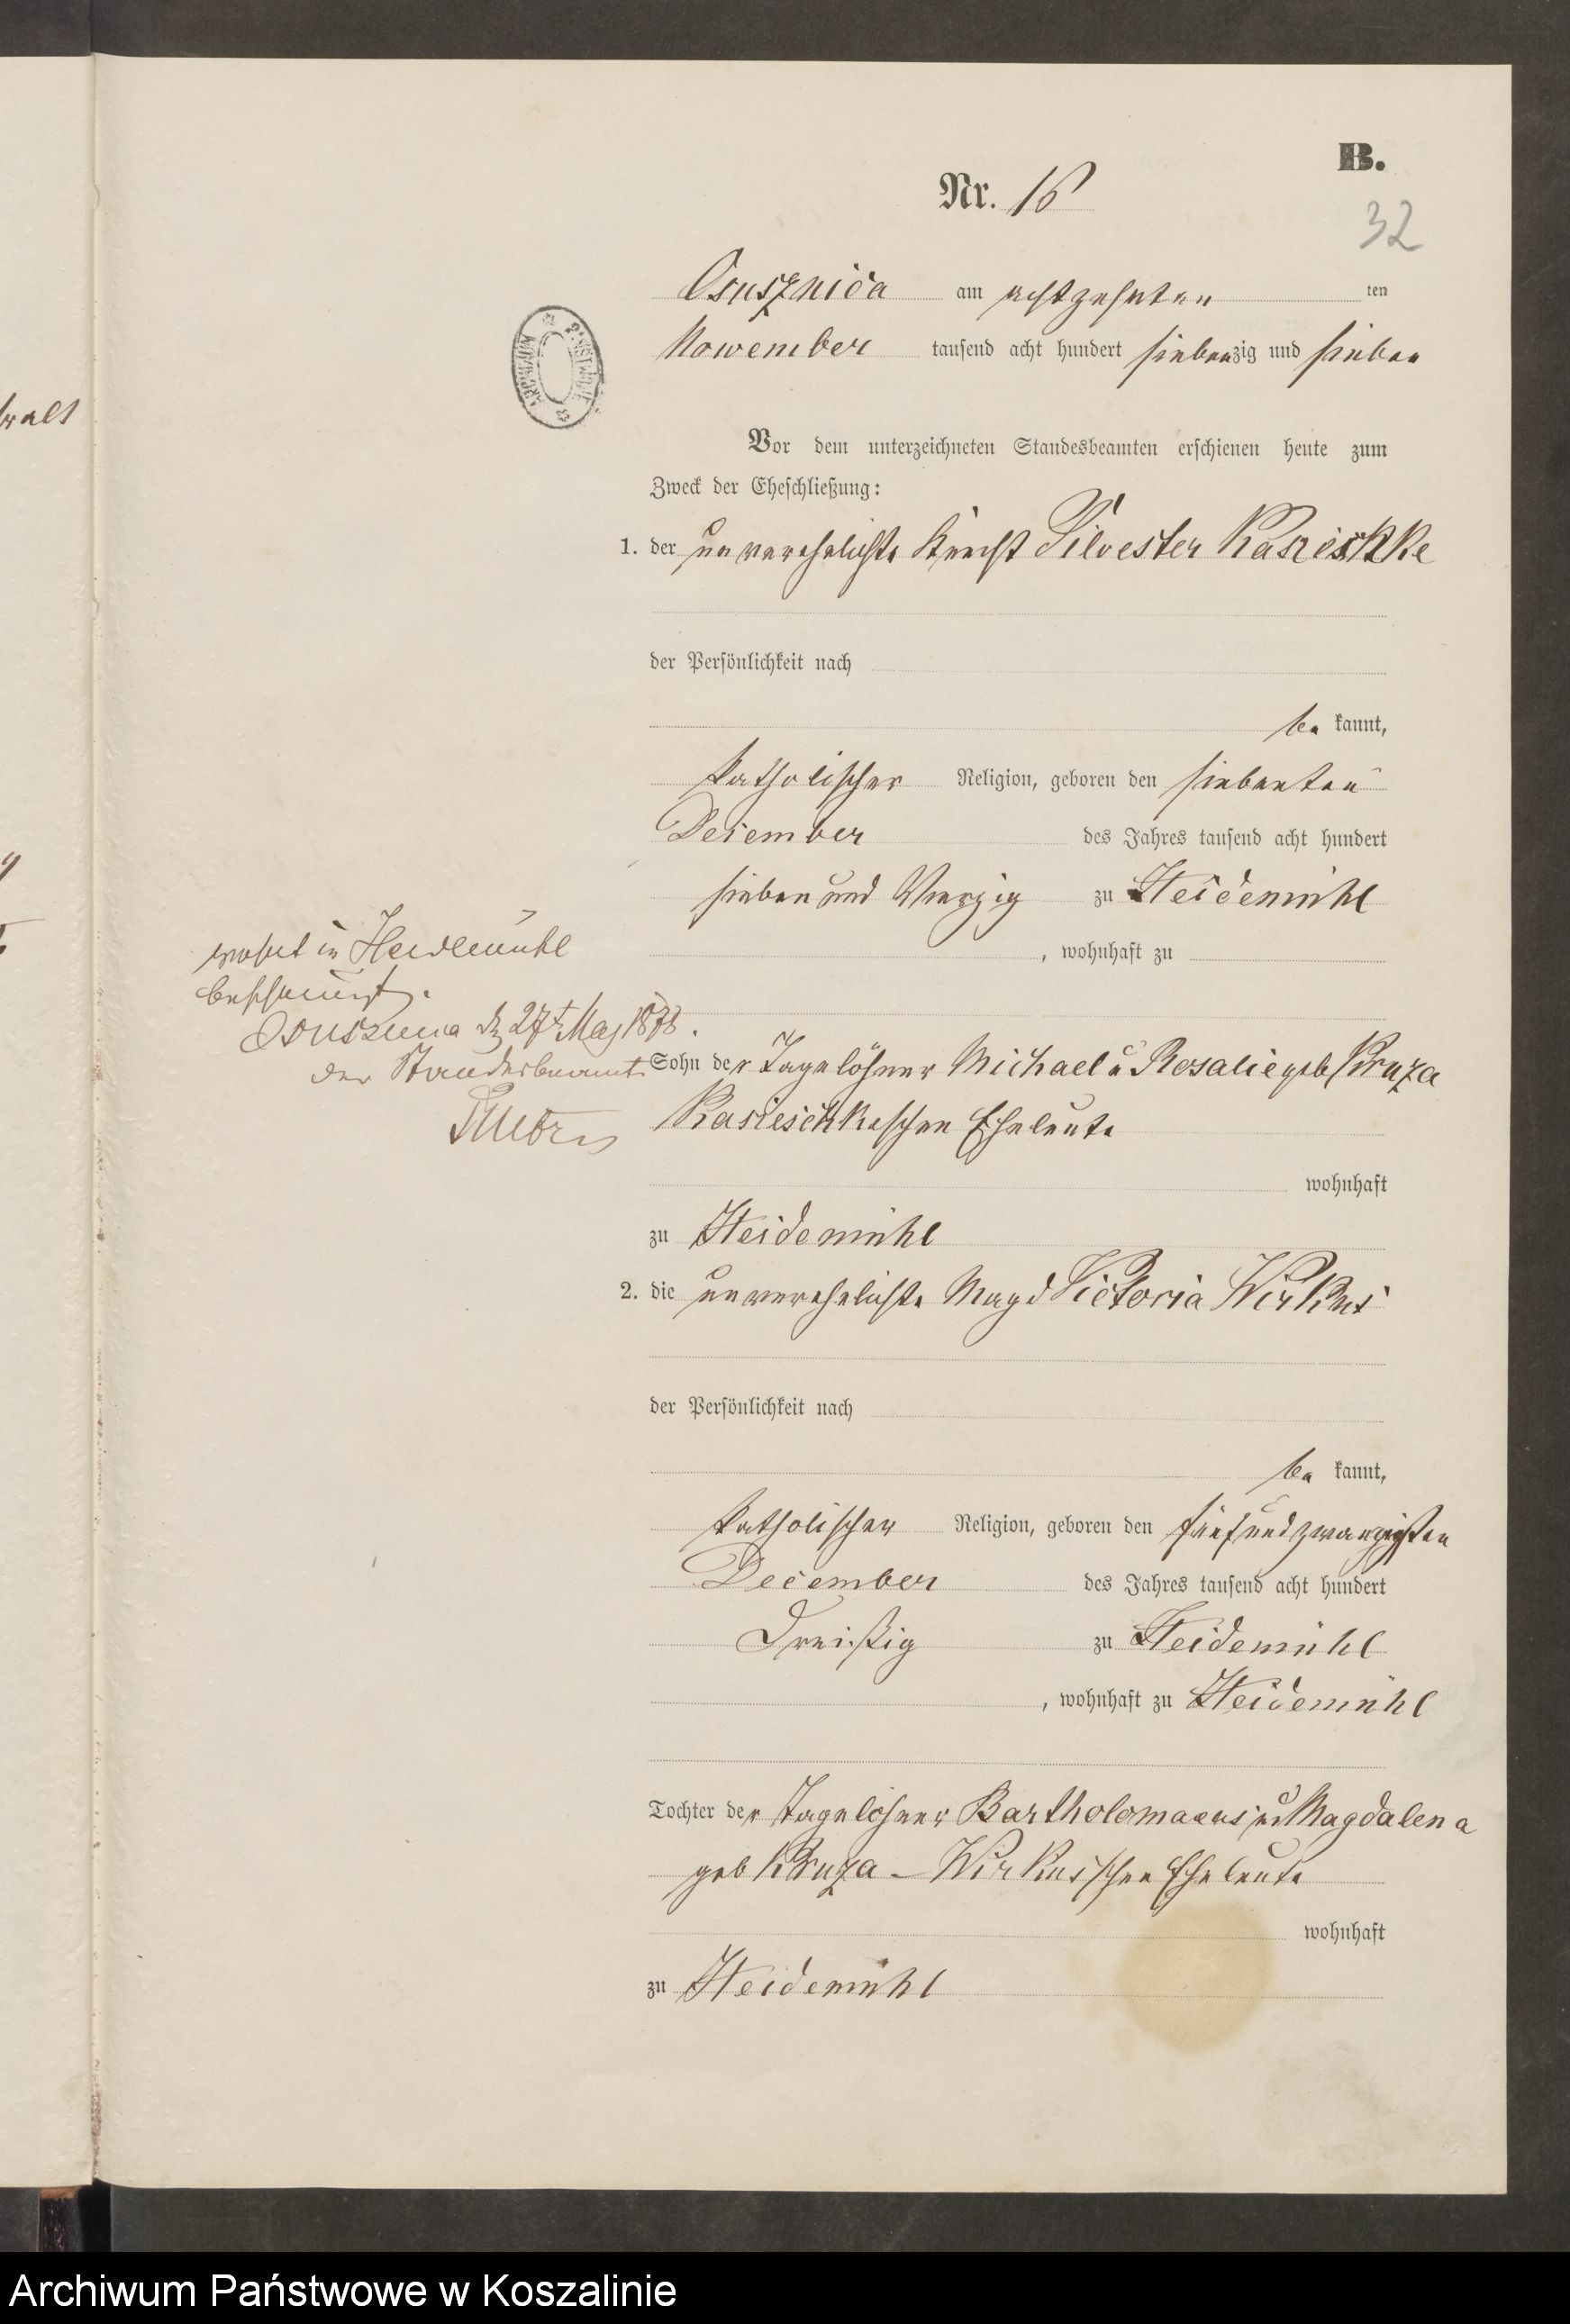 B.
Nr. 16
32
Osusznica am achtzehnten ten
November tausend acht hundert siebenzig und sieben
Vor dem unterzeichneten Standesbeamten erschienen heute zum
Zweck der Eheschließung:
1. der unverehelichte Knecht Silvester Kasischke
der Persönlichkeit nach
be kannt,
katholischer Religion, geboren den siebenten
December des Jahres tausend acht hundert
sieben und Vierzig zu Heidemühl
, wohnhaft zu
wohnt in Heidemühl
bescheinigt.
Osusznica d 27t May 1878.
der Standesbeamte
Sohn der Tagelöhner Michael u Rosalie geb Kruza
Kasieschkeschen Eheleute
wohnhaft
zu Heidemühl
2. die unverehelichte Magd Victoria Wirkus
der Persönlichkeit nach
be kannt,
katholischer Religion, geboren den fünfundzwanzigsten
December des Jahres tausend acht hundert
Dreißig zu Heidemühl
, wohnhaft zu Heidemühl
Tochter der Tagelöhner Bartholomaeus und Magdalena
geb Kruza – Wirkusschen Eheleute
wohnhaft
zu Heidemühl
Archiwum Państwowe w Koszalinie